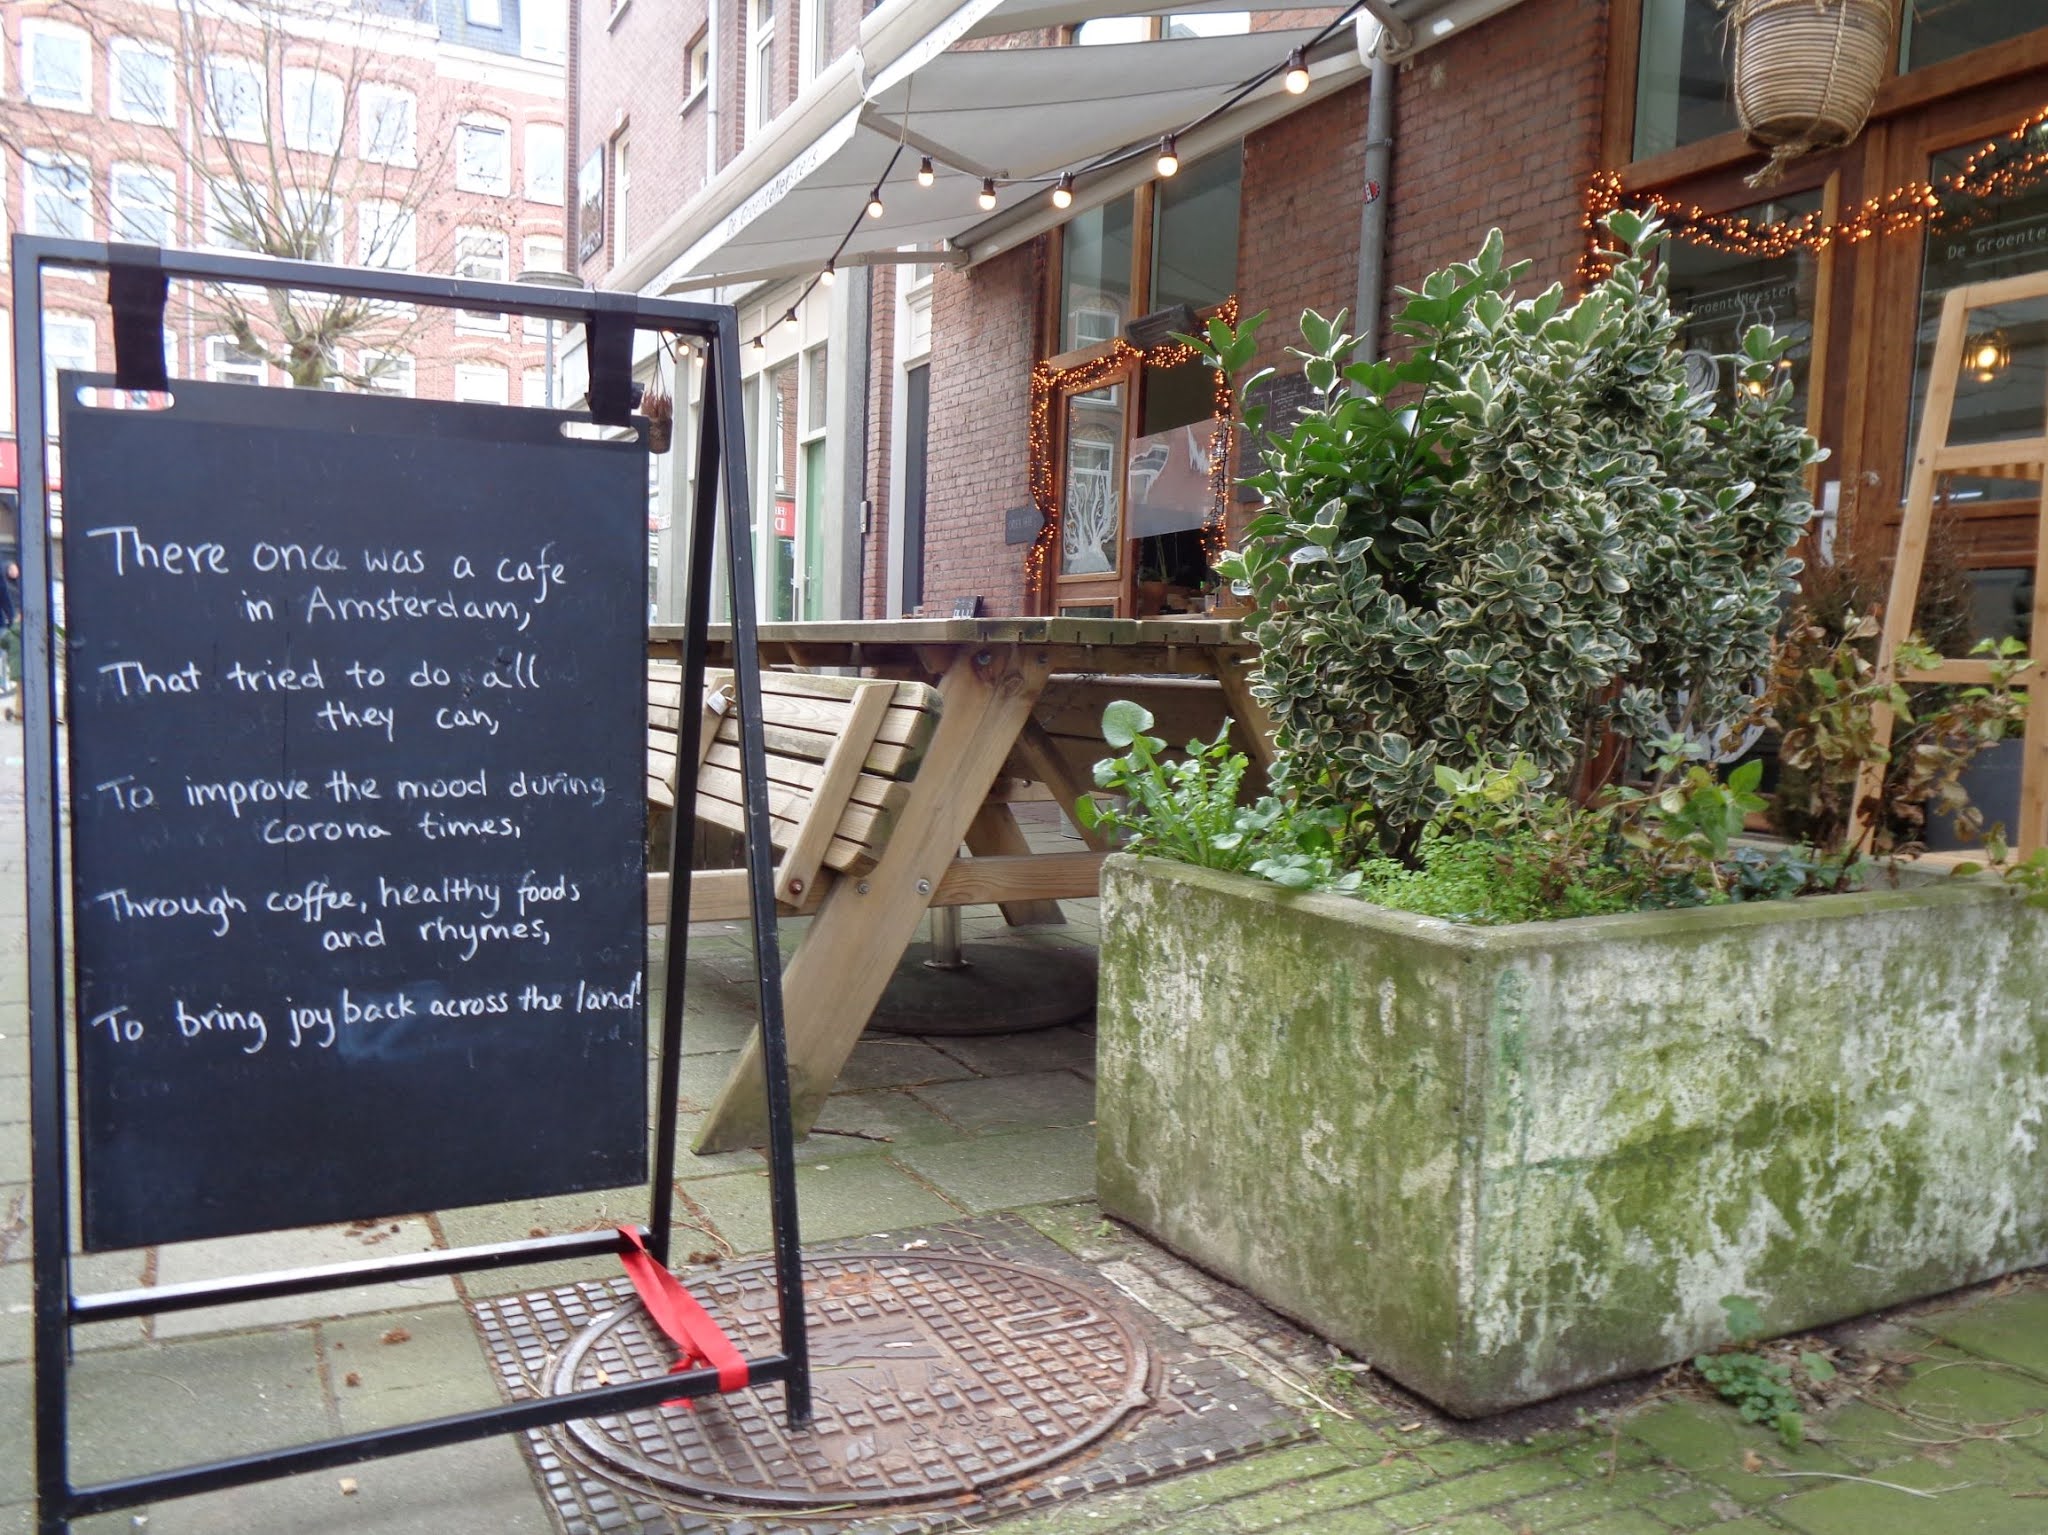 There once was a cafe
in Amsterdam,
That tried to do all
they can,
To improve the mood during
corona times,
Through coffee, healthy foods
and rhymes,
To bring joy back across the land!
De GroenteMeesters
GroenteMeesters
De Groente